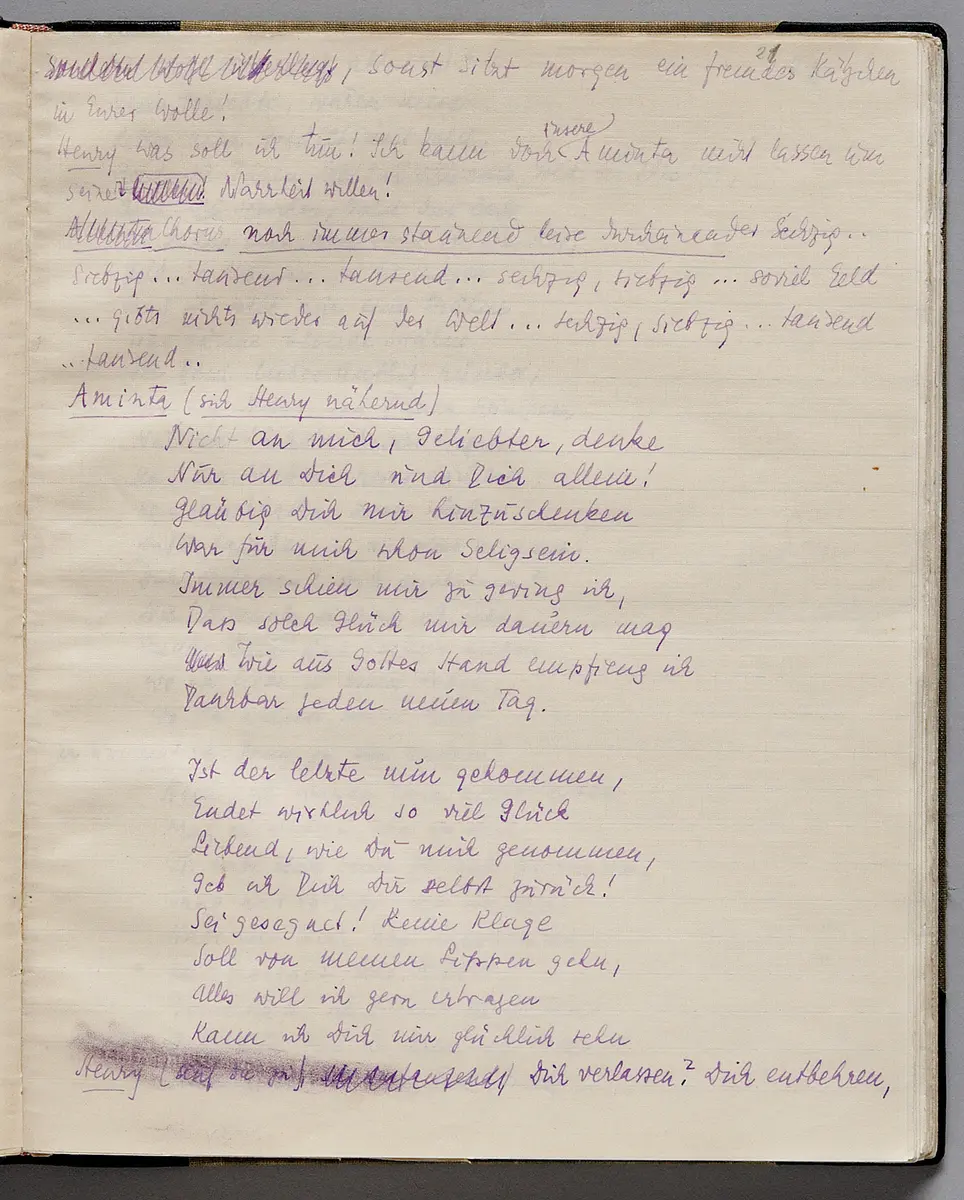 21
, sonst sitzt morgen ein fremdes Kätzchen
in Eurer Wolle!
Henry Was soll ich tun! Ich kann doch unsere Aminta nicht lassen um
seiner Narrheit willen!
Chorus noch immer staunend leise durcheinander Sechzig..
Siebzig... tausend... tausend... sechzig, siebzig... soviel Geld
... gibts nichts wieder auf der Welt... sechzig, siebzig... tausend
...tausend..
Aminta (sich Henry nähernd)
Nicht an mich, Geliebter, denke
Nur an Dich und Dich allein!
Gläubig Dich mir hinzuschenken
War für mich schon Seligsein.
Immer schien mir zu gering ich,
Dass solch Glück mir dauern mag
Wie aus Gottes Hand empfieng ich
Dankbar jeden neuen Tag.
Ist der letzte nun gekommen,
Endet wirklich so viel Glück
Liebend, wie Du mich genommen,
Geb ich Dich Dir selbst zurück!
Sei gesegnet! Keine Klage
Soll von meinen Lippen gehn,
Alles will ich gern ertragen
Kann ich Dich nur glücklich sehn
Henry (auf sie zu) Dich verlassen? Dich entbehren,